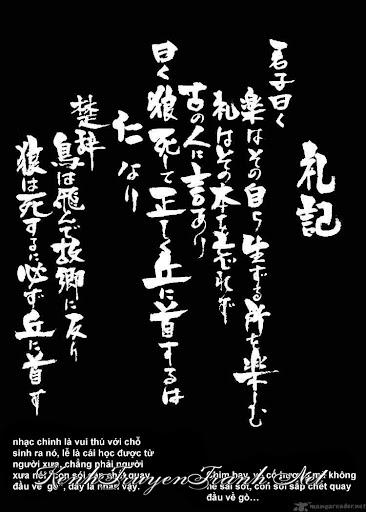 礼記
君子曰く
楽はその自ら生ずる所を楽しむ
礼はその本を忘れず
古の人に言あり
曰く狼死して正しく丘に首するは
仁なり
楚辞
鳥は飛んで故郷に反り
狼は死するに必ず丘に首す
nhạc chinh là vui thú với chỗ
sinh ra nó, lễ là cái học được từ
người xưa, chẳng phải người
xưa nói con sói sắp chết quay
đầu về "gò", đấy là nhân vậy.
chim bay, về cố hương mà không
hề sai sót, con sói sắp chết quay
đầu về gò...
KenhTruyenTranh.Net
mangareader.net